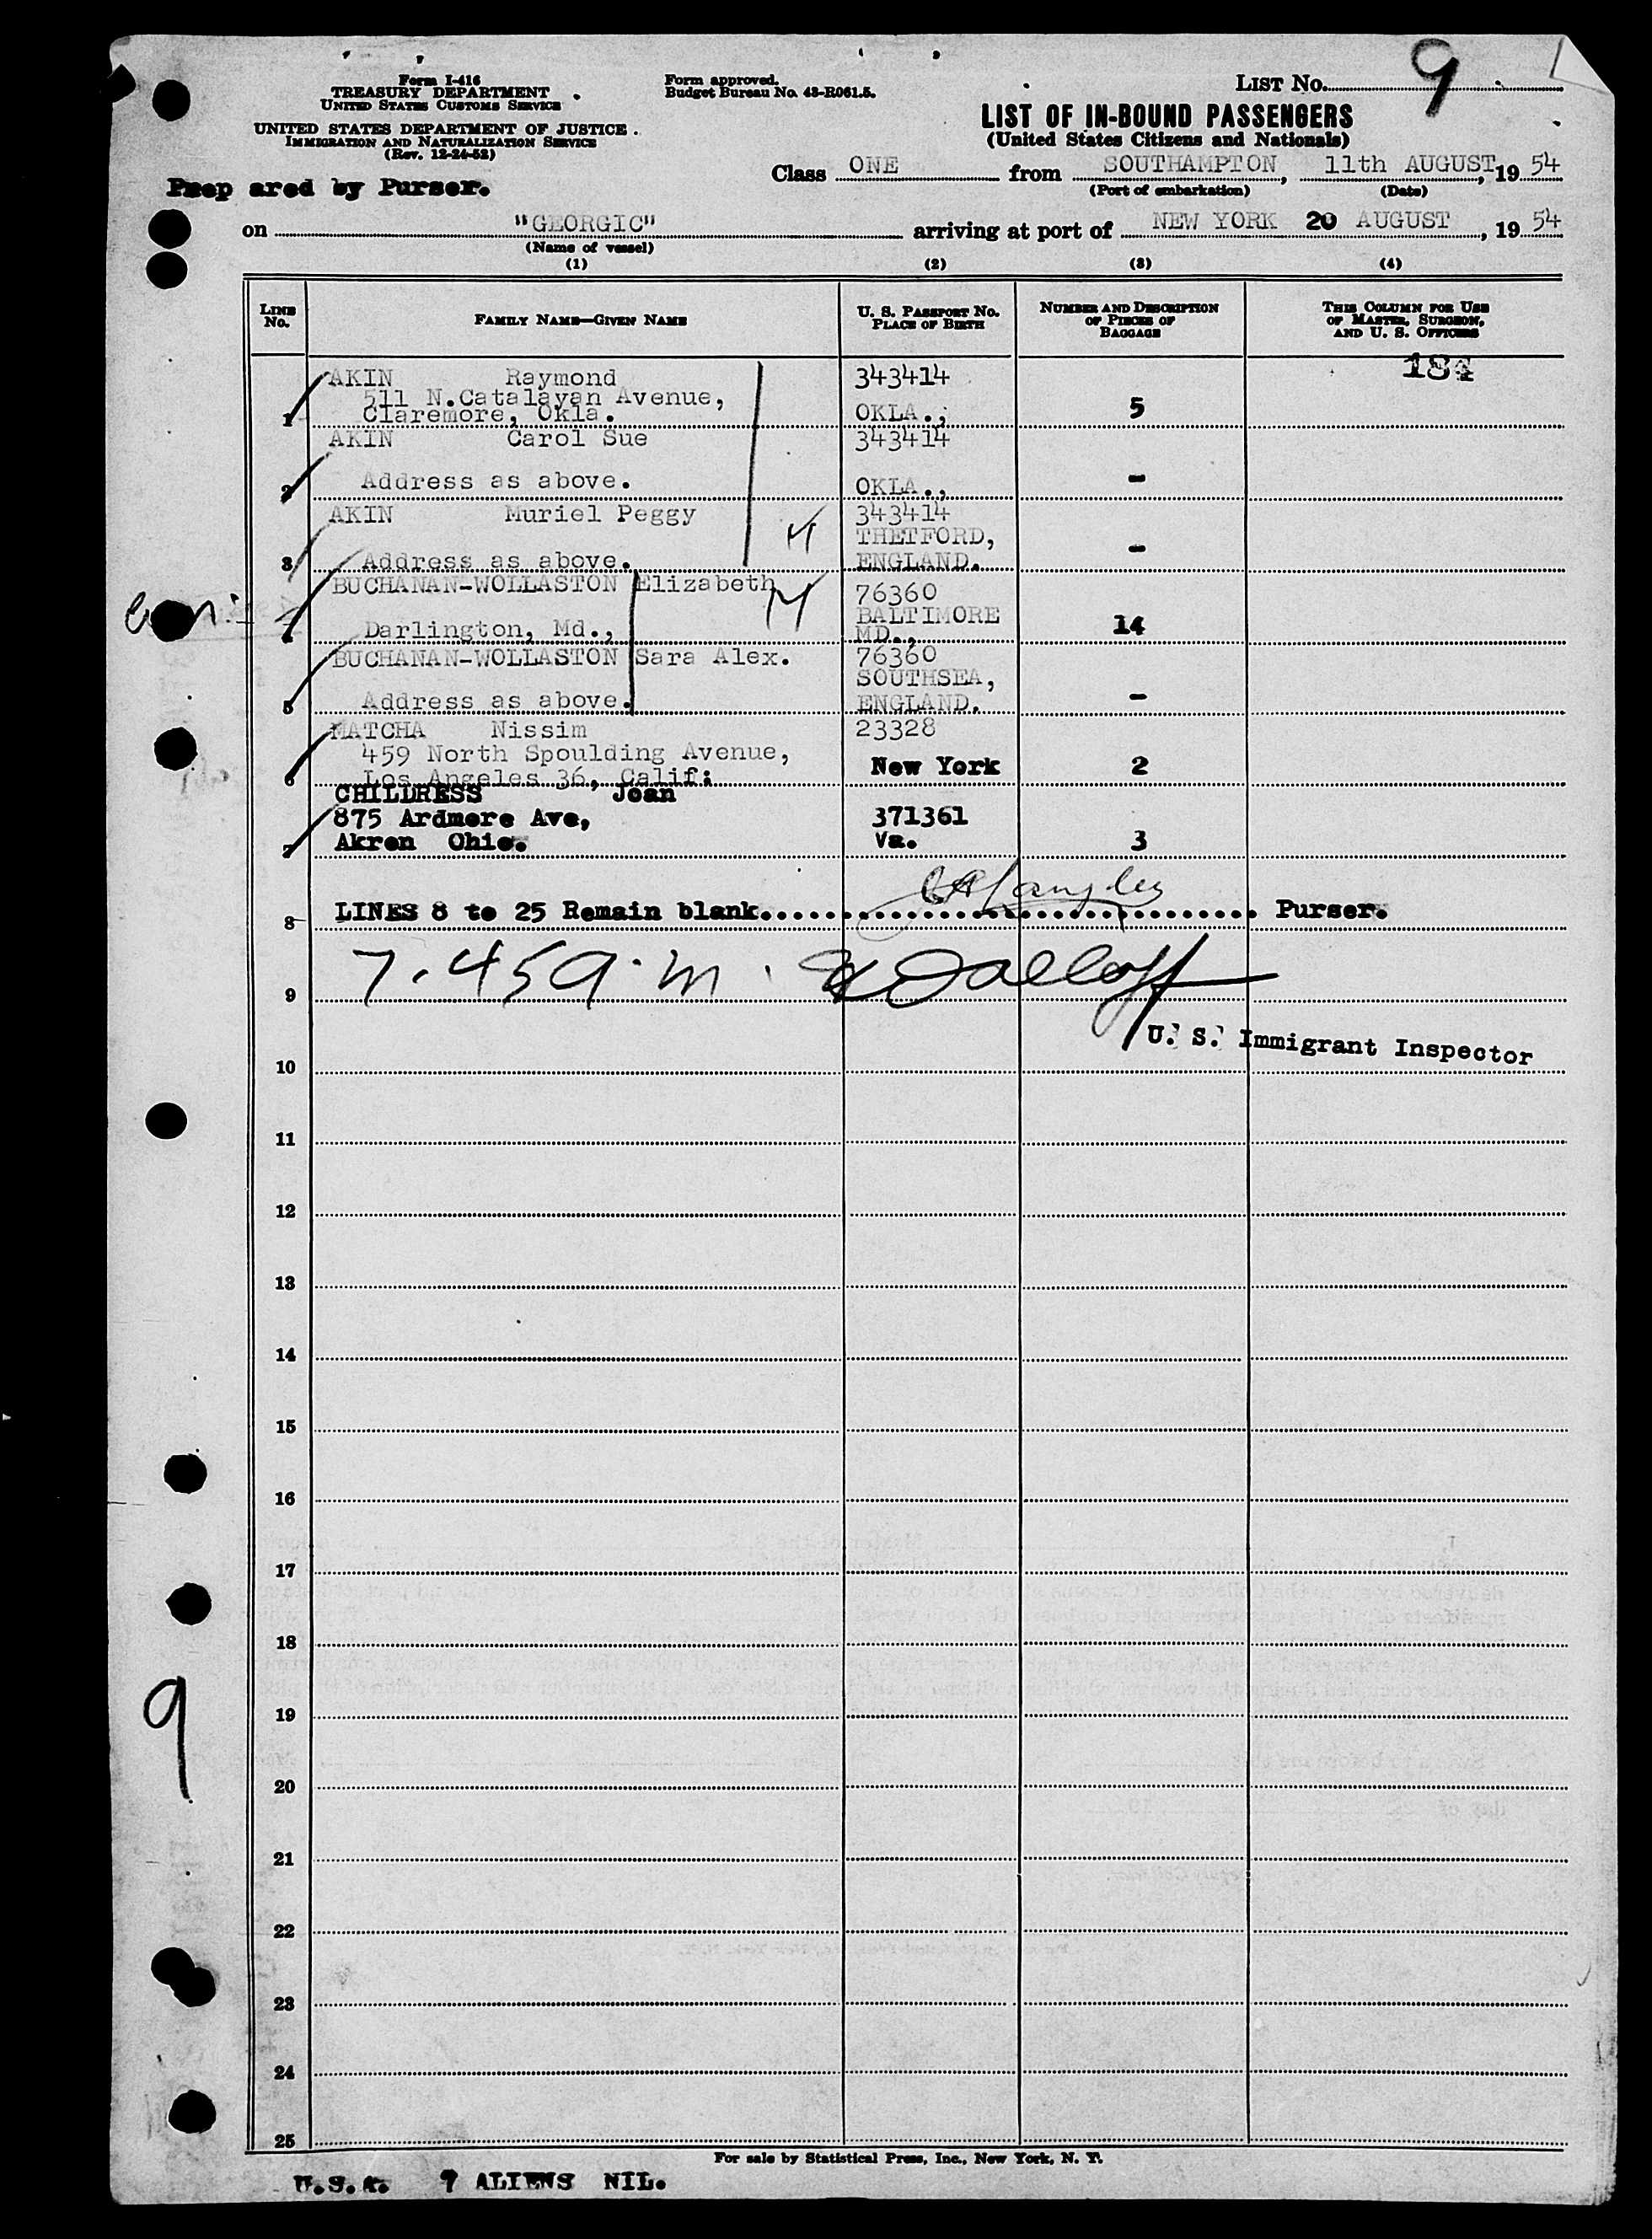 Form I-416
TREASURY DEPARTMENT
UNITED STATES CUSTOMS SERVICE
UNITED STATES DEPARTMENT OF JUSTICE
IMMIGRATION AND NATURALIZATION SERVICE
(Rev. 12-24-52)
Form approved.
Budget Bureau No. 43-R061.5.
LIST No. 9
LIST OF IN-BOUND PASSENGERS
(United States Citizens and Nationals)
Prep ared by Purser.
Class ONE from SOUTHAMPTON, 11th AUGUST, 19 54
(Port of embarkation) (Date)
on "GEORGIC" arriving at port of NEW YORK 20 AUGUST, 19 54
(Name of vessel)
(1) (2) (3) (4)
LINE No. FAMILY NAME—GIVEN NAME U. S. PASSPORT No. PLACE OF BIRTH NUMBER AND DESCRIPTION OF PIECES OF BAGGAGE THIS COLUMN FOR USE OF MASTER, SURGEON, AND U. S. OFFICERS
184
AKIN Raymond 343414
511 N.Catalayan Avenue,
1 Claremore, Okla. OKLA., 5
AKIN Carol Sue 343414
2 Address as above. OKLA., -
AKIN Muriel Peggy 343414
THETFORD,
3 Address as above. ENGLAND. -
BUCHANAN-WOLLASTON Elizabeth 76360
BALTIMORE
4 Darlington, Md., MD., 14
BUCHANAN-WOLLASTON Sara Alex. 76360
SOUTHSEA,
5 Address as above. ENGLAND. -
MATCHA Nissim 23328
459 North Spoulding Avenue,
6 Los Angeles 36, Calif: New York 2
CHILDRESS Joan
875 Ardmore Ave, 371361
7 Akron Ohio. Va. 3
8 LINES 8 to 25 Remain blank. Purser.
9
U. S. Immigrant Inspector
10
11
12
13
14
15
16
17
18
9
19
20
21
22
23
24
25
For sale by Statistical Press, Inc., New York, N. Y.
U.S.A. 7 ALIENS NIL.